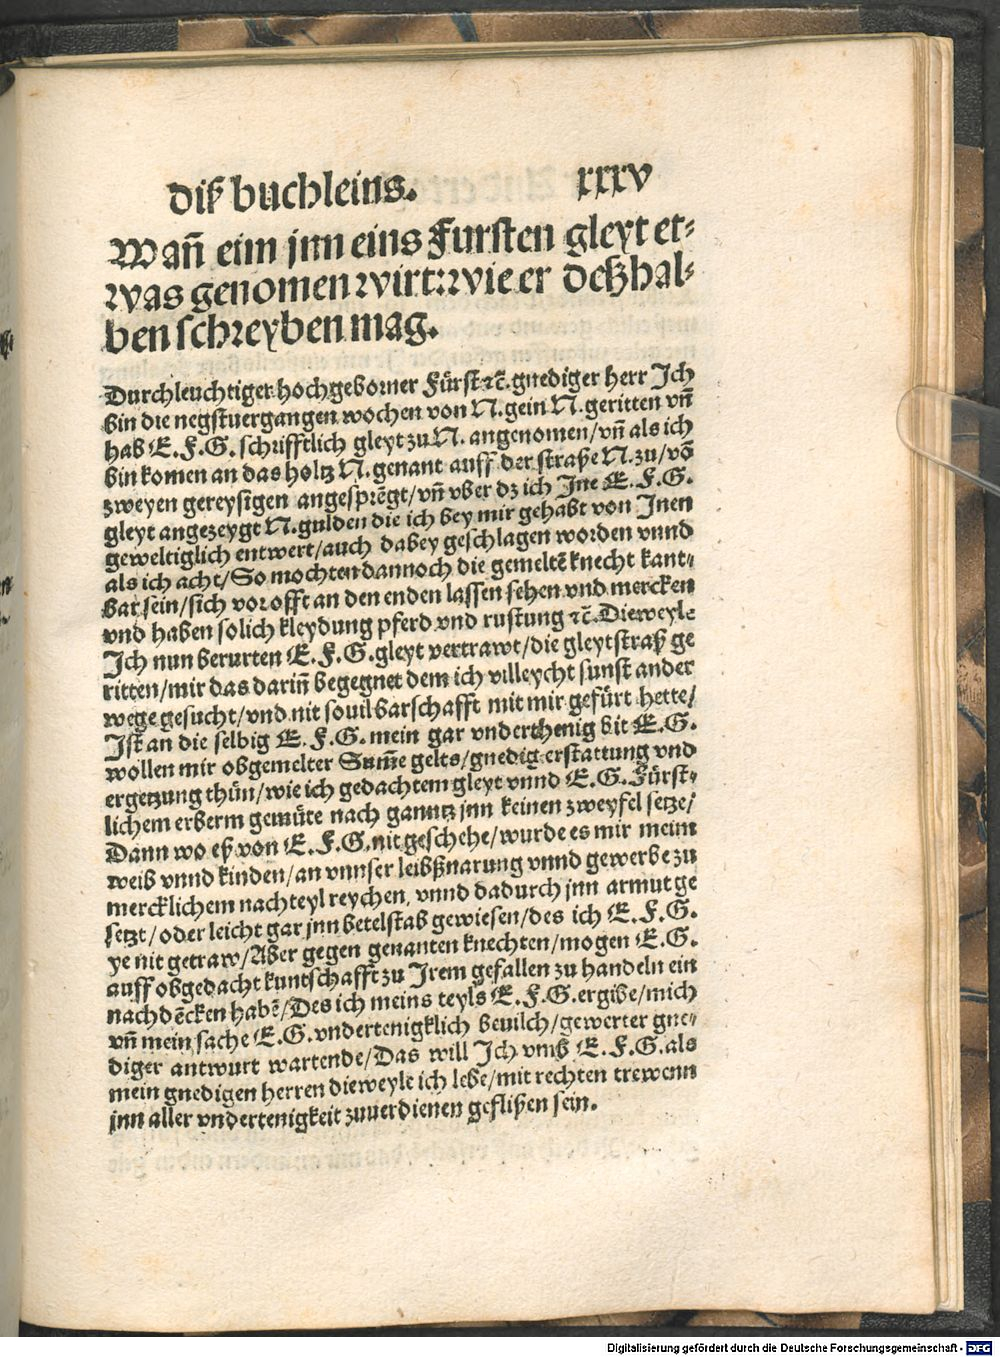 diß buchleins. xxxv
Wañ eim jnn eins Fursten gleyt et⸗
was genomen wirt: wie er deßhal⸗
ben schreyben mag.
Durchleuchtiger hochgeborner Fürst ⁊c̃. gnediger herr Ich
bin die negstuergangen wochen von N. gein N. geritten vñ
hab E. F. G. schrifftlich gleyt zu N. angenomen/vñ als ich
bin komen an das holtz N. genant auff der straße N. zu/võ
zweyen gereysigen angesprẽgt/vñ vber dz ich Jne E. F. G.
gleyt angezeygt N. gulden die ich bey mir gehabt von Jnen
geweltiglich entwert/auch dabey geschlagen worden vnnd
als ich acht/So mochten dannoch die gemeltẽ knecht kant⸗
bar sein/sich vor offt an den enden lassen sehen vnd mercken
vnd haben solich kleydung pferd vnd rustung ⁊c̃. Dieweyle
Ich nun berurten E. F. G. gleyt vertrawt/die gleytstraß ge
ritten/mir das darin̄ begegnet dem ich villeycht sunst ander
wege gesucht/vnd nit souil barschafft mit mir gefürt hette/
Ist an die selbig E. F. G. mein gar vnderthenig bit E. G.
wollen mir obgemelter Sum̄e gelts/gnedig erstattung vnd
ergetzung thün/wie ich gedachtem gleyt vnnd E. G. Fürst⸗
lichem erberm gemüte nach ganntz jnn keinen zweyfel setze/
Dann wo eß von E. F. G. nit geschehe/wurde es mir meim
weib vnnd kinden/an vnnser leibßnarung vnnd gewerbe zu
mercklichem nachteyl reychen, vnnd dadurch jnn armut ge
setzt/oder leicht gar jnn betelstab gewiesen/des ich E. F. G.
ye nit getraw/Aber gegen genanten knechten/mogen E. G.
auff obgedacht kuntschafft zu Irem gefallen zu handeln ein
nachdẽcken habẽ/Des ich meins teyls E. F. G. ergibe/mich
vñ mein sache E. G. vndertenigklich beuilch/gewerter gne⸗
diger antwurt wartende/Das will Ich vmb E. F. G. als
mein gnedigen herren dieweyle ich lebe/mit rechten trewenn
jnn aller vndertenigkeit zuuerdienen geflißen sein.
Digitalisierung gefördert durch die Deutsche Forschungsgemeinschaft - DFG